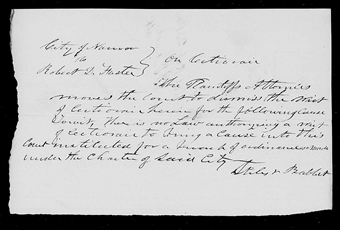 City of Nauvoo
vs
Robert D. Foster
On Certiorari
The Plaintiffs Attornies
moves the Court to dismiss the writ
of Certiorari herein for the following cause
Towit, There is no Law authorizing a writ
of Certiorari to bring a Cause into this
Court instituted for a breach of ordinance
under the Charter of said City